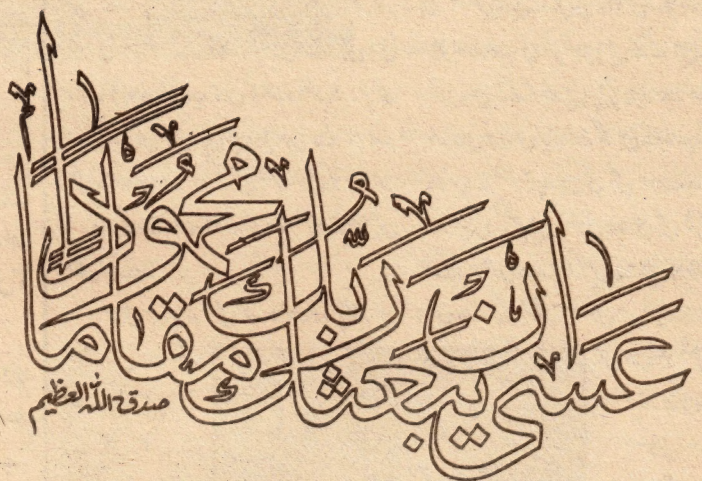 عَسَى اَنْ يَبْعَثَكَ رَبُّكَ مَقَامًا مَحْمُودًا
صدق الله العظيم